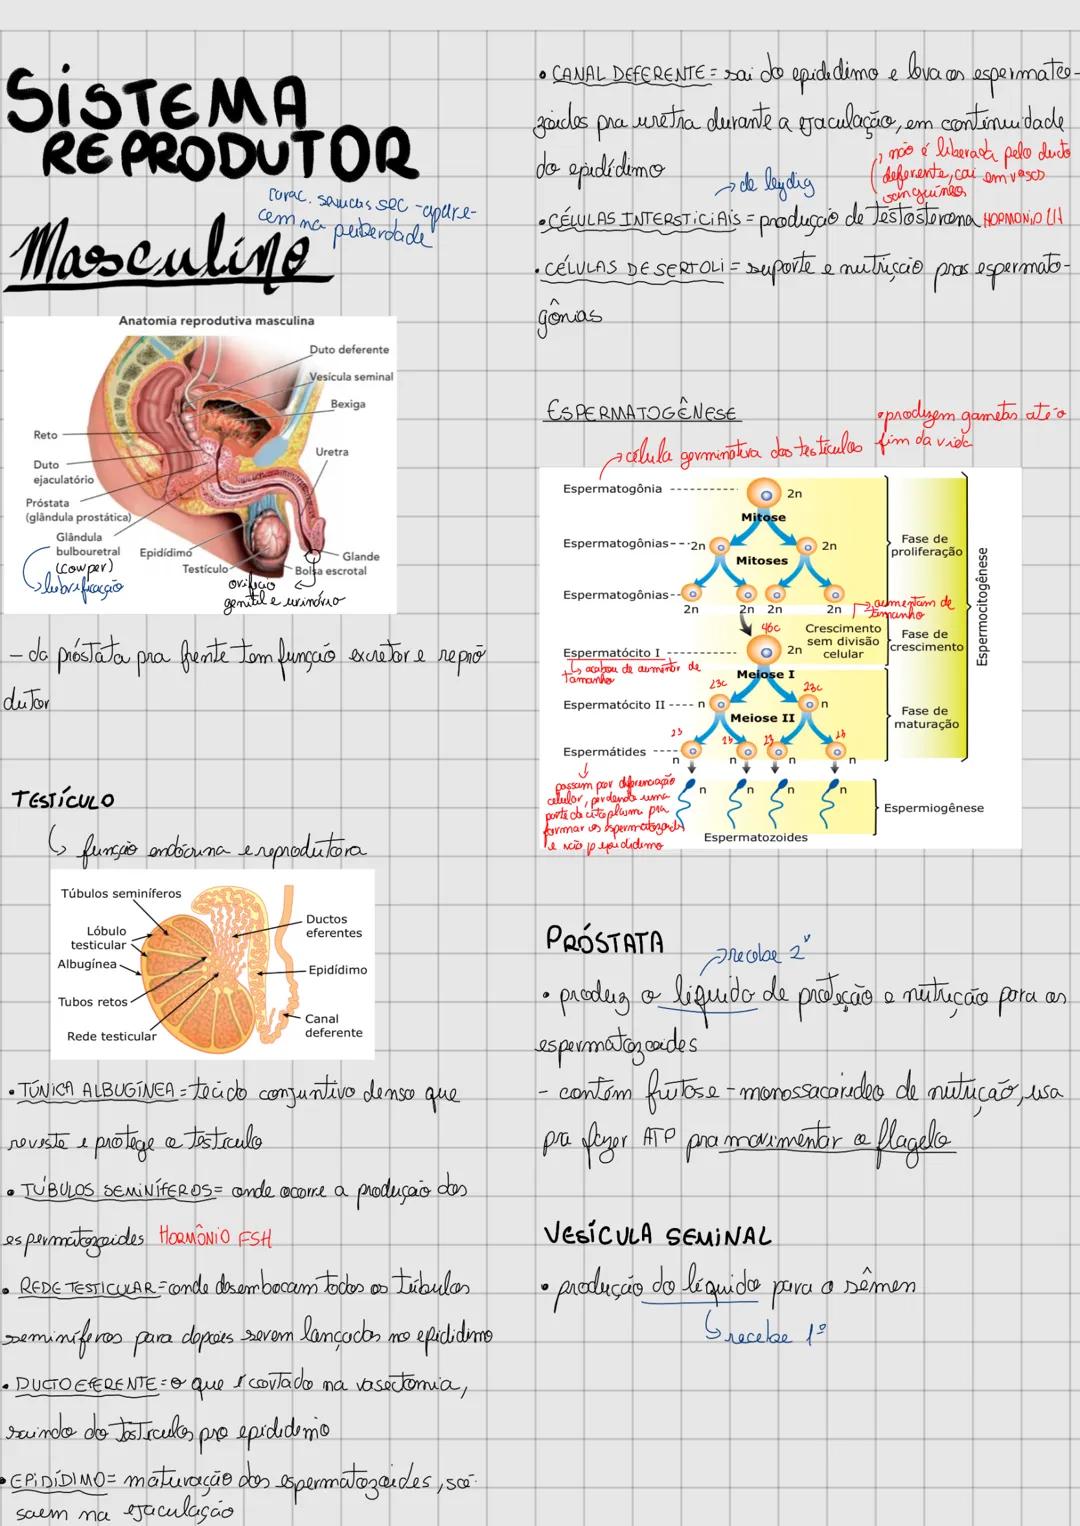 SISTEMA
REPRODUTOR
carac. sexuais sec - apare-
cem na puberdade
Masculino
Anatomia reprodutiva masculina
Duto deferente
Vesícula seminal
Bexiga
Reto
Uretra
Duto
ejaculatório
Próstata
(glândula prostática)
Glândula
bulbouretral
(cowper)
lubrificação
Epidídimo
Testículo
Glande
Bolsa escrotal
orifício
genital e urinário
- da próstata pra frente tem função excretor e repro
dutor
TESTÍCULO
função endócrina e reprodutora
Túbulos seminíferos
Lóbulo
testicular
Albugínea
Tubos retos
Rede testicular
Ductos
eferentes
Epidídimo
Canal
deferente
• TÚNICA ALBUGÍNEA = tecido conjuntivo denso que
reveste e protege o testículo
• TÚBULOS SEMINÍFEROS = onde ocorre a produção dos
espermatozoides HORMÔNIO FSH
• REDE TESTICULAR = onde desembocam todos os túbulos
seminíferos para depois serem lançados no epidídimo
• DUCTO EFERENTE = o que é cortado na vasectomia,
saindo do testículos pro epidídimo
• EPIDÍDIMO = maturação dos espermatozoides, só
saem na ejaculação
• CANAL DEFERENTE = sai do epidídimo e leva os espermato-
zoides pra uretra durante a ejaculação, em continuidade
do epidídimo
não é liberada pelo ducto
deferente, cai em vasos
sanguíneos
de leydig
• CÉLULAS INTERSTICIAIS = produção de testosterona HORMONIO LH
• CÉLULAS DE SERTOLI = suporte e nutrição pras espermato-
gônias
ESPERMATOGÊNESE
• produzem gametas até o
fim da vida
célula germinativa dos testículos
Espermatogônia
2n
Mitose
Espermatogônias
2n
2n
Mitoses
Espermatogônias
2n
2n
2n
2n
Fase de
proliferação
aumentam de
tamanho
46c
Crescimento
sem divisão
celular
Fase de
crescimento
Espermatócito I
2n
acabou de aumentar de
tamanho
Meiose I
23c
23c
Espermatócito II
n
n
Meiose II
Fase de
maturação
Espermocitogênese
23
23
23
23
Espermátides
n
n
n
n
passam por diferenciação
celular, perdendo uma
parte do citoplasma pra
formar os espermatozoides
e vão p epidídimo
n
n
n
n
Espermatozoides
Espermiogênese
PRÓSTATA
recebe 2º
• produz o líquido de proteção e nutrição para os
espermatozoides
- contém frutose - monossacarídeo de nutrição, usa
pra fazer ATP pra movimentar o flagelo
VESÍCULA SEMINAL
• produção do líquido para o sêmen
recebe 1º